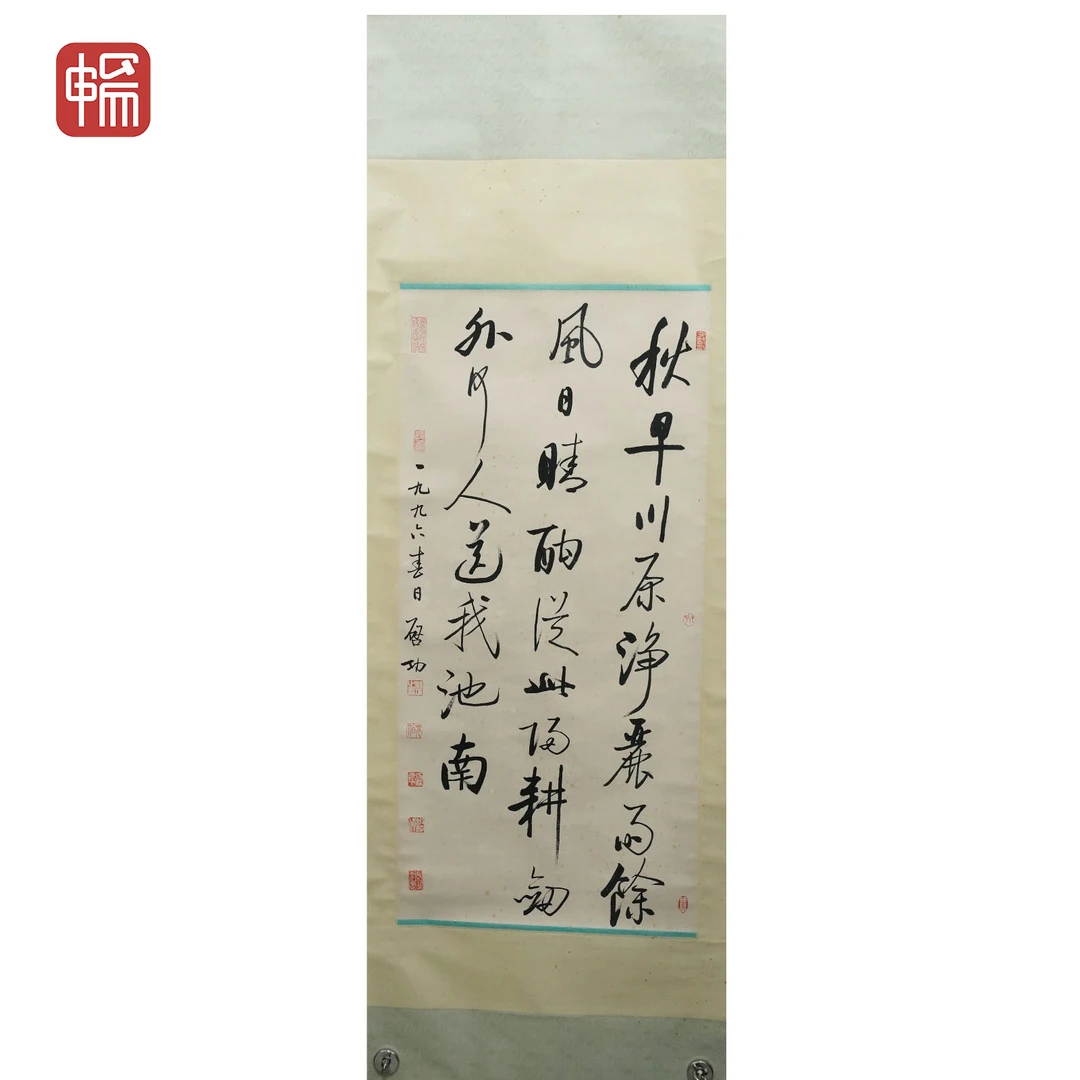 秋早川原淨麗雨餘
風日晴酣從此歸耕劔
外何人送我池南
一九九六春日啟功